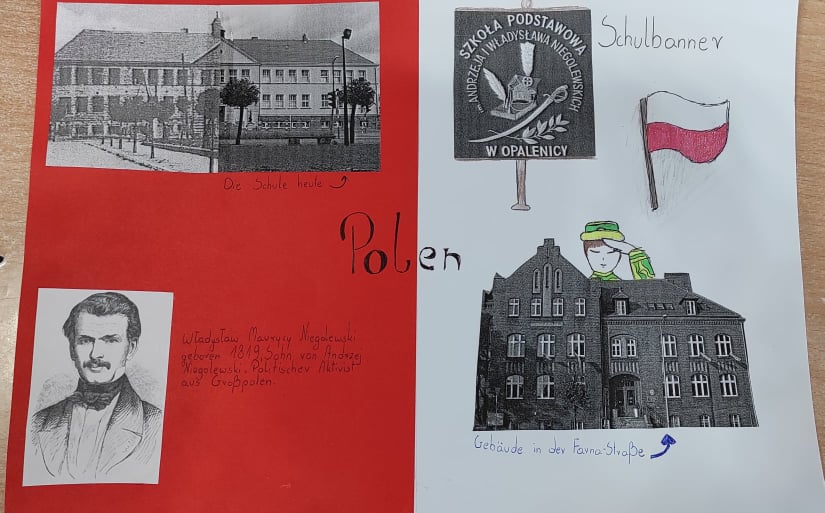 Die Schule heute
Polen
Władysław Maurycy Niegolewski
geboren 1819, Sohn von Andrzej
Niegolewski. Politischer Aktivist
aus Großpolen.
SZKOŁA PODSTAWOWA
im. ANDRZEJA I WŁADYSŁAWA NIEGOLEWSKICH
W OPALENICY
Schulbanner
Gebäude in der Farna-Straße